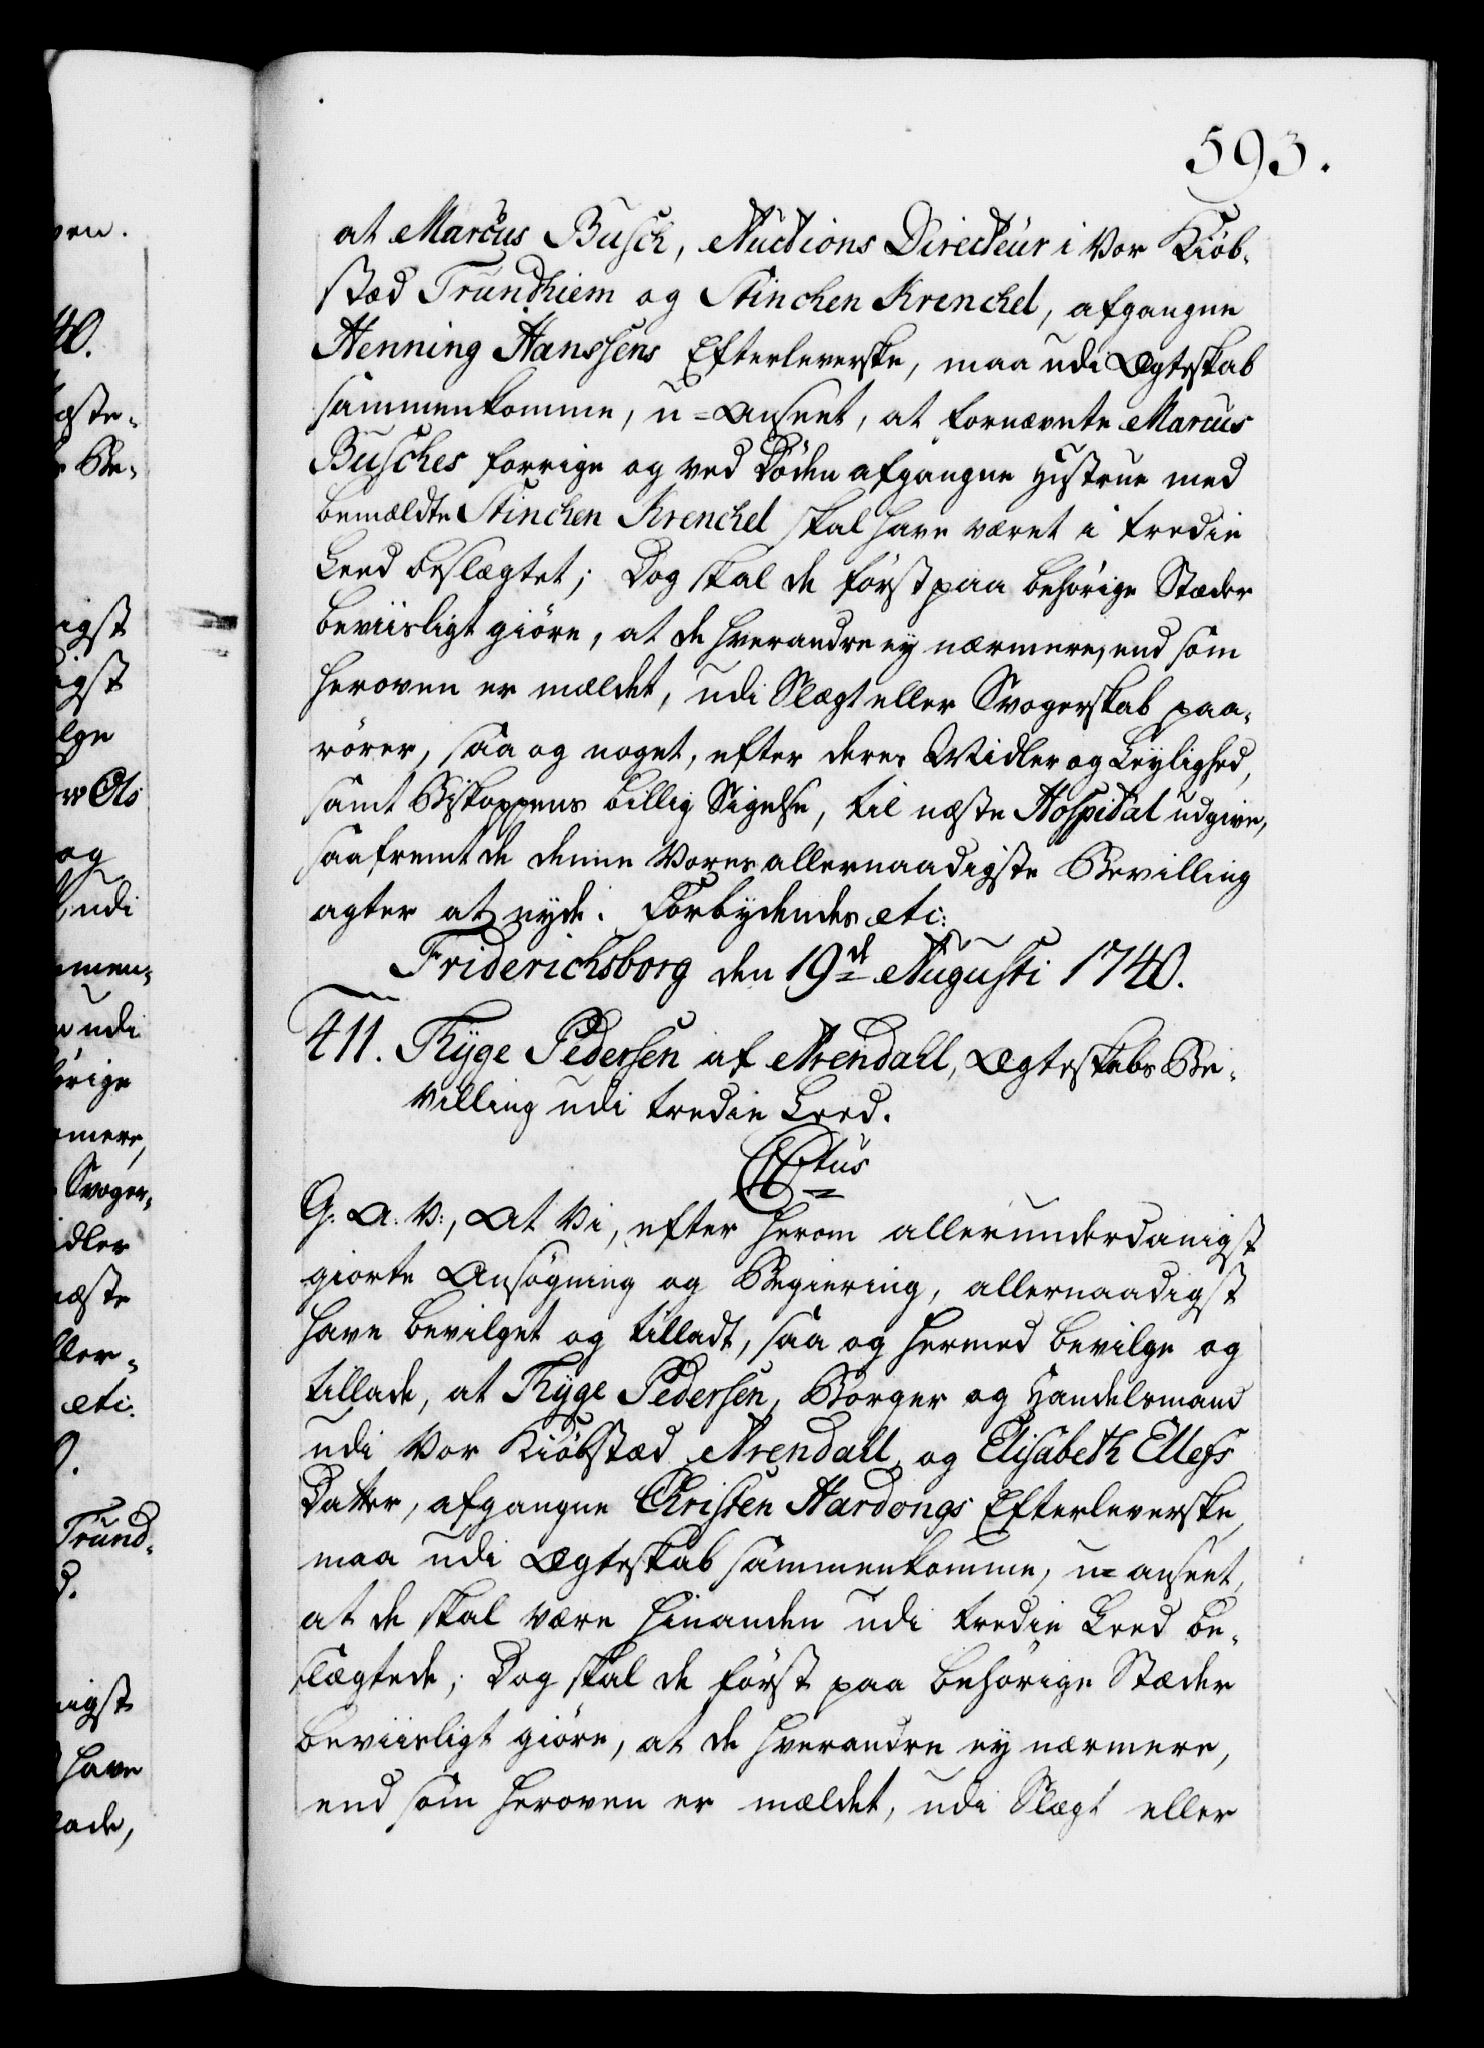 593.
at Marcus Busch, Auctions Directeur i Vor Kiöb-
stæd Trundhiem og Stinchen Krenchel, afgangne
Henning Hanssens Efterleverske, maa udi Ægteskab
sammenkomme, u=anseet, at fornævnte Marcus
Busches forrige og ved Döden afgangne Hustrue med
bemældte Stinchen Krenchel skal have været i tredie
Leed beslægtet; Dog skal de først paa behörige Stæder
beviisligt giöre, at de hverandre ey nærmere, end som
heroven er mældet, udi Slægt eller Svogerskab paa-
rörer, saa og noget, efter deres Midler og Leylighed,
samt Biskoppens billig Sigelse, til næste Hospital udgive,
saafremt de denne Vores allernaadigste Bevilling
agter at nyde. Forbydendes etc:
Friderichsborg den 19de Augusti 1740.
411. Tyge Pedersen af Arendall, Ægteskabs Be-
villing udi tredie Leed.
CCtus
G. A. V:, At Vi, efter herom allerunderdanigst
giorte Ansögning og Begiering, allernaadigst
have bevilget og tilladt, saa og hermed bevilge og
tillade, at Tyge Pedersen, Borger og Handelsmand
udi Vor Kiöbstæd Arendall, og Elisabeth Ellefs
Datter, afgangne Christen Hardongs Efterleverske,
maa udi Ægteskab sammenkomme, u=anseet,
at de skal være hinanden udi tredie Leed be-
slægtede; Dog skal de först paa behörige Stæder
beviisligt giöre, at de hverandre ey nærmere,
end som heroven er mældet, udi Slægt eller